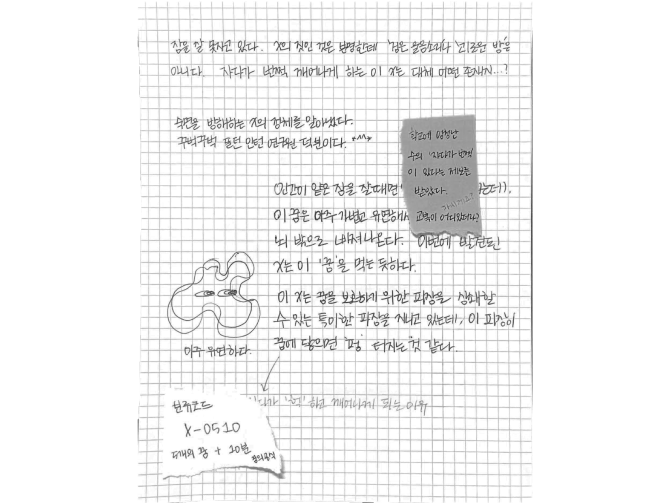 잠을 잘 못자고 있다. X의 짓인 것은 분명한데 '검은 울음소리'나 '괴로운 밤'은
아니다. 자다가 번쩍 깨어나게 하는 이 X는 대체 어떤 존재지...?
숙면을 방해하는 X의 정체를 알아냈다.
꾸벅꾸벅 필턴 인턴 연구원 덕분이다. *^^*
학교에 엄청난
수의 '자다가 번쩍'
이 있다는 제보를
받았다.
교육이 어디있더라?
인간이 얕은 잠을 잘 때면
는데).
이 꿈은 아주 가볍고 유연해서
뇌 밖으로 빠져나온다. 이번에 발견된
X는 이 '꿈'을 먹는 듯하다.
이 X는 꿈을 보호하기 위한 파장을 상쇄할
수 있는 특이한 파장을 지니고 있는데, 이 파장이
꿈에 닿으면 '펑' 터지는 것 같다.
아주 유연하다.
자다가 '헉'하고 깨어나게 되는 이유
분류코드
X-0510
5개의 꿈 + 10분